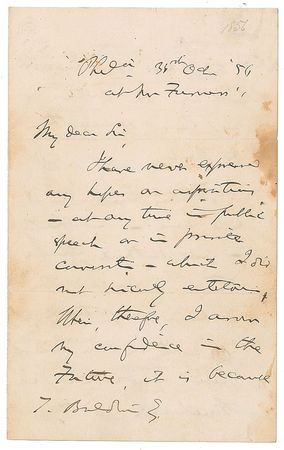 1856
Phila 30th Oct '56
at Mr Furness',
My dear Sir,
I have never expressed
any hopes or aspirations
– at any time in public
speech or in private
– which I did
not sincerely entertain.
When, therefore, I avow
my confidence in the
Future, it is because
T. Baldwin Esq.